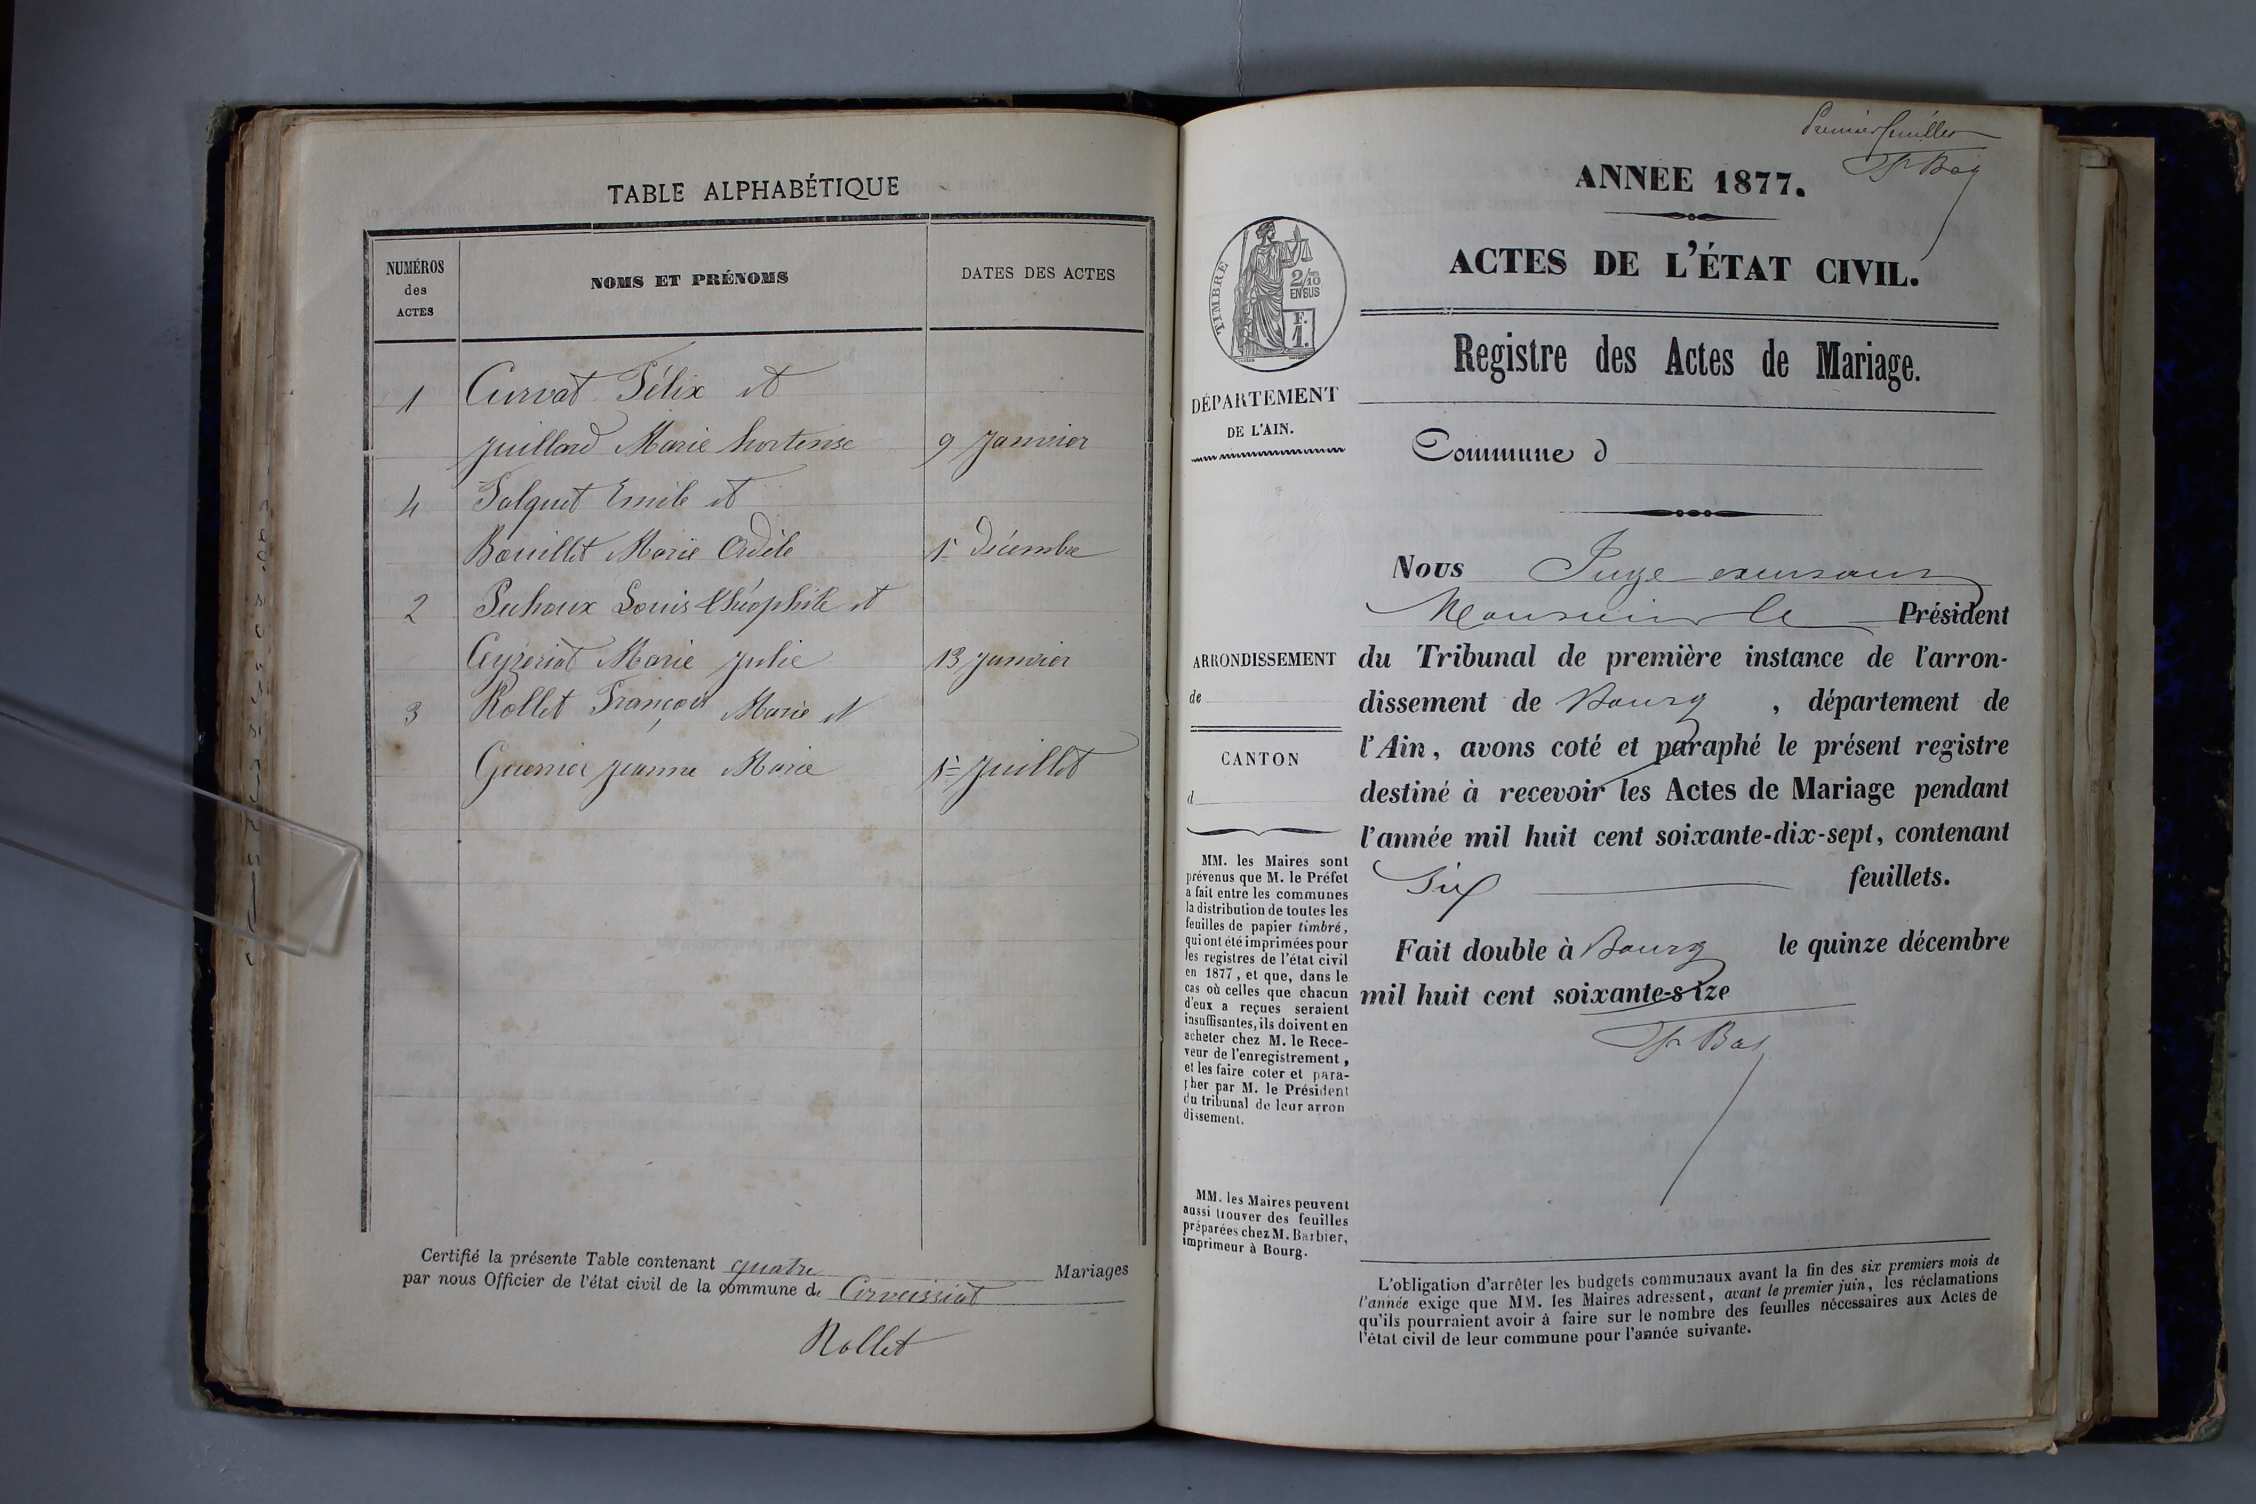 TABLE ALPHABÉTIQUE
NUMÉROS des ACTES
NOMS ET PRÉNOMS
DATES DES ACTES
1 Curvat Félix et
Juillard Marie hortense 9 Janvier
4 Falquet Emile et
Bouillet Marie Adèle 1er Décembre
2 Puhoux Louis théophile et
Ayzeriat Marie Julie 13 Janvier
3 Rollet François Marie et
Goumier Jeanne Marie 1er Juillet
Certifié la présente Table contenant quatre Mariages
par nous Officier de l'état civil de la commune de Corveissiat
Rollet
Premier feuillet
ANNÉE 1877.
ACTES DE L'ÉTAT CIVIL.
TIMBRE
2/10
EN SUS
F.
1.
Registre des Actes de Mariage.
DÉPARTEMENT
DE L'AIN.
Commune d
Nous Juge
Monsieur le Président
du Tribunal de première instance de l'arron-
dissement de Bourg, département de
l'Ain, avons coté et paraphé le présent registre
destiné à recevoir les Actes de Mariage pendant
l'année mil huit cent soixante-dix-sept, contenant
Six feuillets.
Fait double à Bourg le quinze décembre
mil huit cent soixante-seize
ARRONDISSEMENT
de
CANTON
d
MM. les Maires sont
prévenus que M. le Préfet
a fait entre les communes
la distribution de toutes les
feuilles de papier timbré,
qui ont été imprimées pour
les registres de l'état civil
en 1877, et que, dans le
cas où celles que chacun
d'eux a reçues seraient
insuffisantes, ils doivent en
acheter chez M. le Rece-
veur de l'enregistrement,
et les faire coter et para-
pher par M. le Président
du tribunal de leur arron
dissement.
MM. les Maires peuvent
aussi trouver des feuilles
préparées chez M. Barbier,
imprimeur à Bourg.
L'obligation d'arrêter les budgets communaux avant la fin des six premiers mois de
l'année exige que MM. les Maires adressent, avant le premier juin, les réclamations
qu'ils pourraient avoir à faire sur le nombre des feuilles nécessaires aux Actes de
l'état civil de leur commune pour l'année suivante.